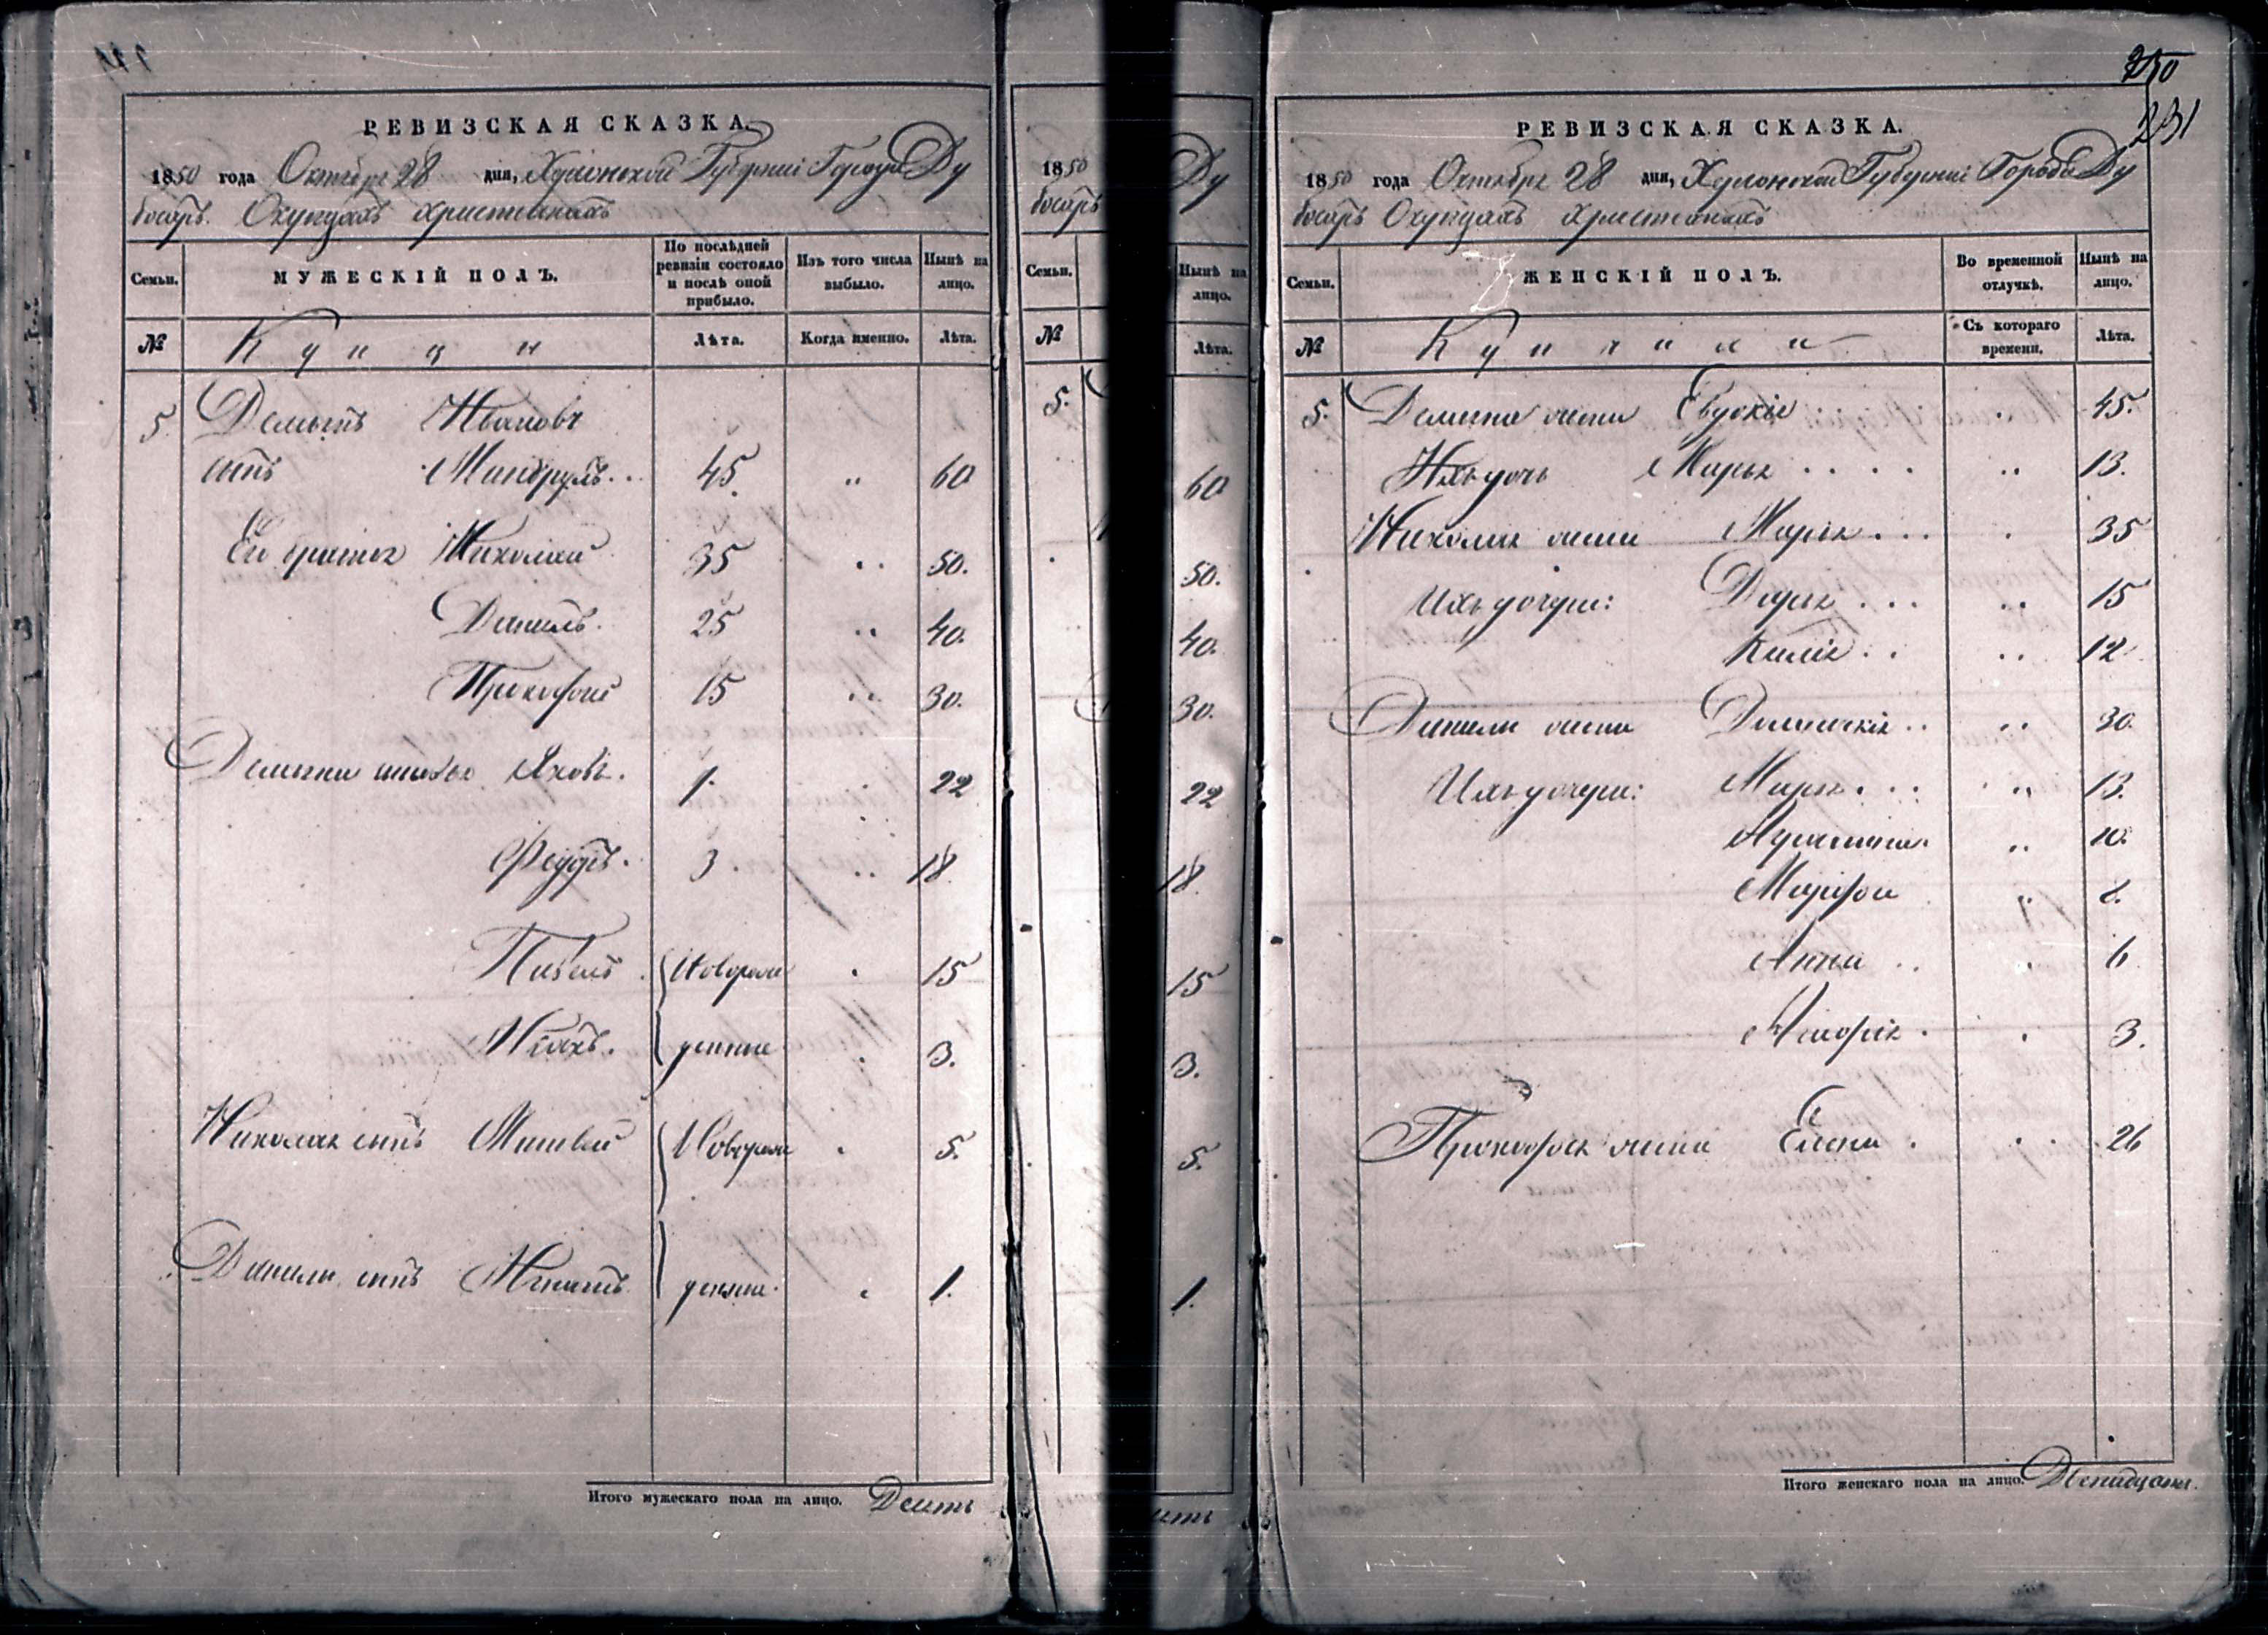 РЕВИЗСКАЯ СКАЗКА
1850 года Октября 28 дня, Херсонской Губернiи Города Ду
босаръ. О Купцахъ христiанахъ
Семьи.
МУЖЕСКIЙ ПОЛЪ.
По послѣдней ревизiи состояло и послѣ оной прибыло.
Изъ того числа выбыло.
Нынѣ на лицо.
№
Купцы
Лѣта.
Когда именно.
Лѣта.
5 Демьянъ Ивановъ
сынъ 45 " 60
Его братья Николай 35 " 50.
Данилъ. 25 " 40.
Прокофiй 15 " 30.
Демьяна сыновья Яковъ. 1. 22
Федоръ. 3. " 18.
Павелъ. Новорож 15
Исакъ. денные 3.
Николая сынъ Матвей Новорож 5.
Данилы сынъ Игнатъ денные. 1.
Итого мужескаго пола на лицо.
1850
Ду
босаръ
Семьи.
Нынѣ на лицо.
№
Лѣта.
5.
60
50.
40.
30.
22
18.
15
3.
5.
1.
250
231
РЕВИЗСКАЯ СКАЗКА.
1850 года Октября 28 дня, Херсонской Губернiи Города Ду
босаръ О Купцахъ христiанахъ
Семьи.
ЖЕНСКIЙ ПОЛЪ.
Во временной отлучкѣ.
Нынѣ на лицо.
№
Съ котораго времени.
Лѣта.
5. Демьяна жена Евдокiя 45.
Ихъ дочь Марья " 13.
Николая жена Марья 35
Ихъ дочери: Дарья " 15
12
Данилы жена Домникiя " 30.
Ихъ дочери: Марья " 13.
" 10.
Марфа " 8.
Анна 6
3.
Прокофья жена Елена 26
Итого женскаго пола на лицо. Двенадцать.